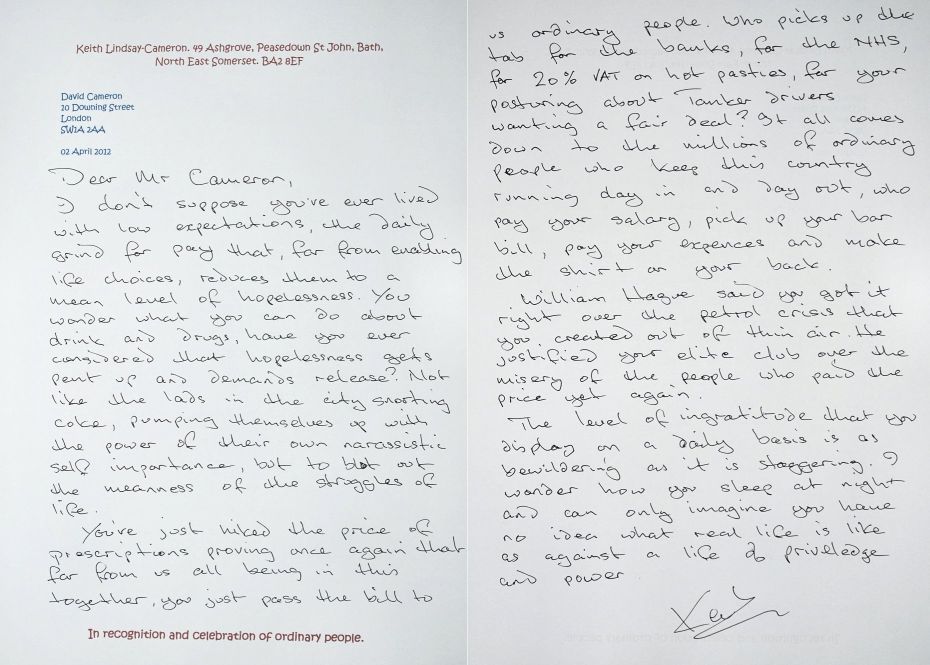 Keith Lindsay-Cameron. 49 Ashgrove, Peasedown St John, Bath,
North East Somerset. BA2 8EF
David Cameron
10 Downing Street
London
SW1A 2AA
02 April 2012
Dear Mr Cameron,
I don't suppose you've ever lived
with low expectations, the daily
grind for pay that, far from enabling
life choices, reduces them to a
mean level of hopelessness. You
wonder what you can do about
drink and drugs, have you ever
considered that hopelessness gets
pent up and demands release? Not
like the lads in the city snorting
coke, pumping themselves up with
the power of their own narassistic
self importance, but to blot out
the meanness of the struggles of
life.
You've just hiked the price of
prescriptions proving once again that
far from us all being in this
together, you just pass the bill to
In recognition and celebration of ordinary people.
us ordinary people. Who picks up the
tab for the banks, for the NHS,
for 20% VAT on hot pasties, for your
posturing about Tanker drivers
wanting a fair deal? It all comes
down to the millions of ordinary
people who keep this country
running day in and day out, who
pay your salary, pick up your bar
bill, pay your expences and make
the shirt on your back.
William Hague said you got it
right over the petrol crisis that
you created out of thin air. He
justified your elite club over the
misery of the people who paid the
price yet again.
The level of ingratitude that you
display on a daily basis is as
bewildering as it is staggering. I
wonder how you sleep at night
and can only imagine you have
no idea what real life is like
as against a life of priveledge
and power